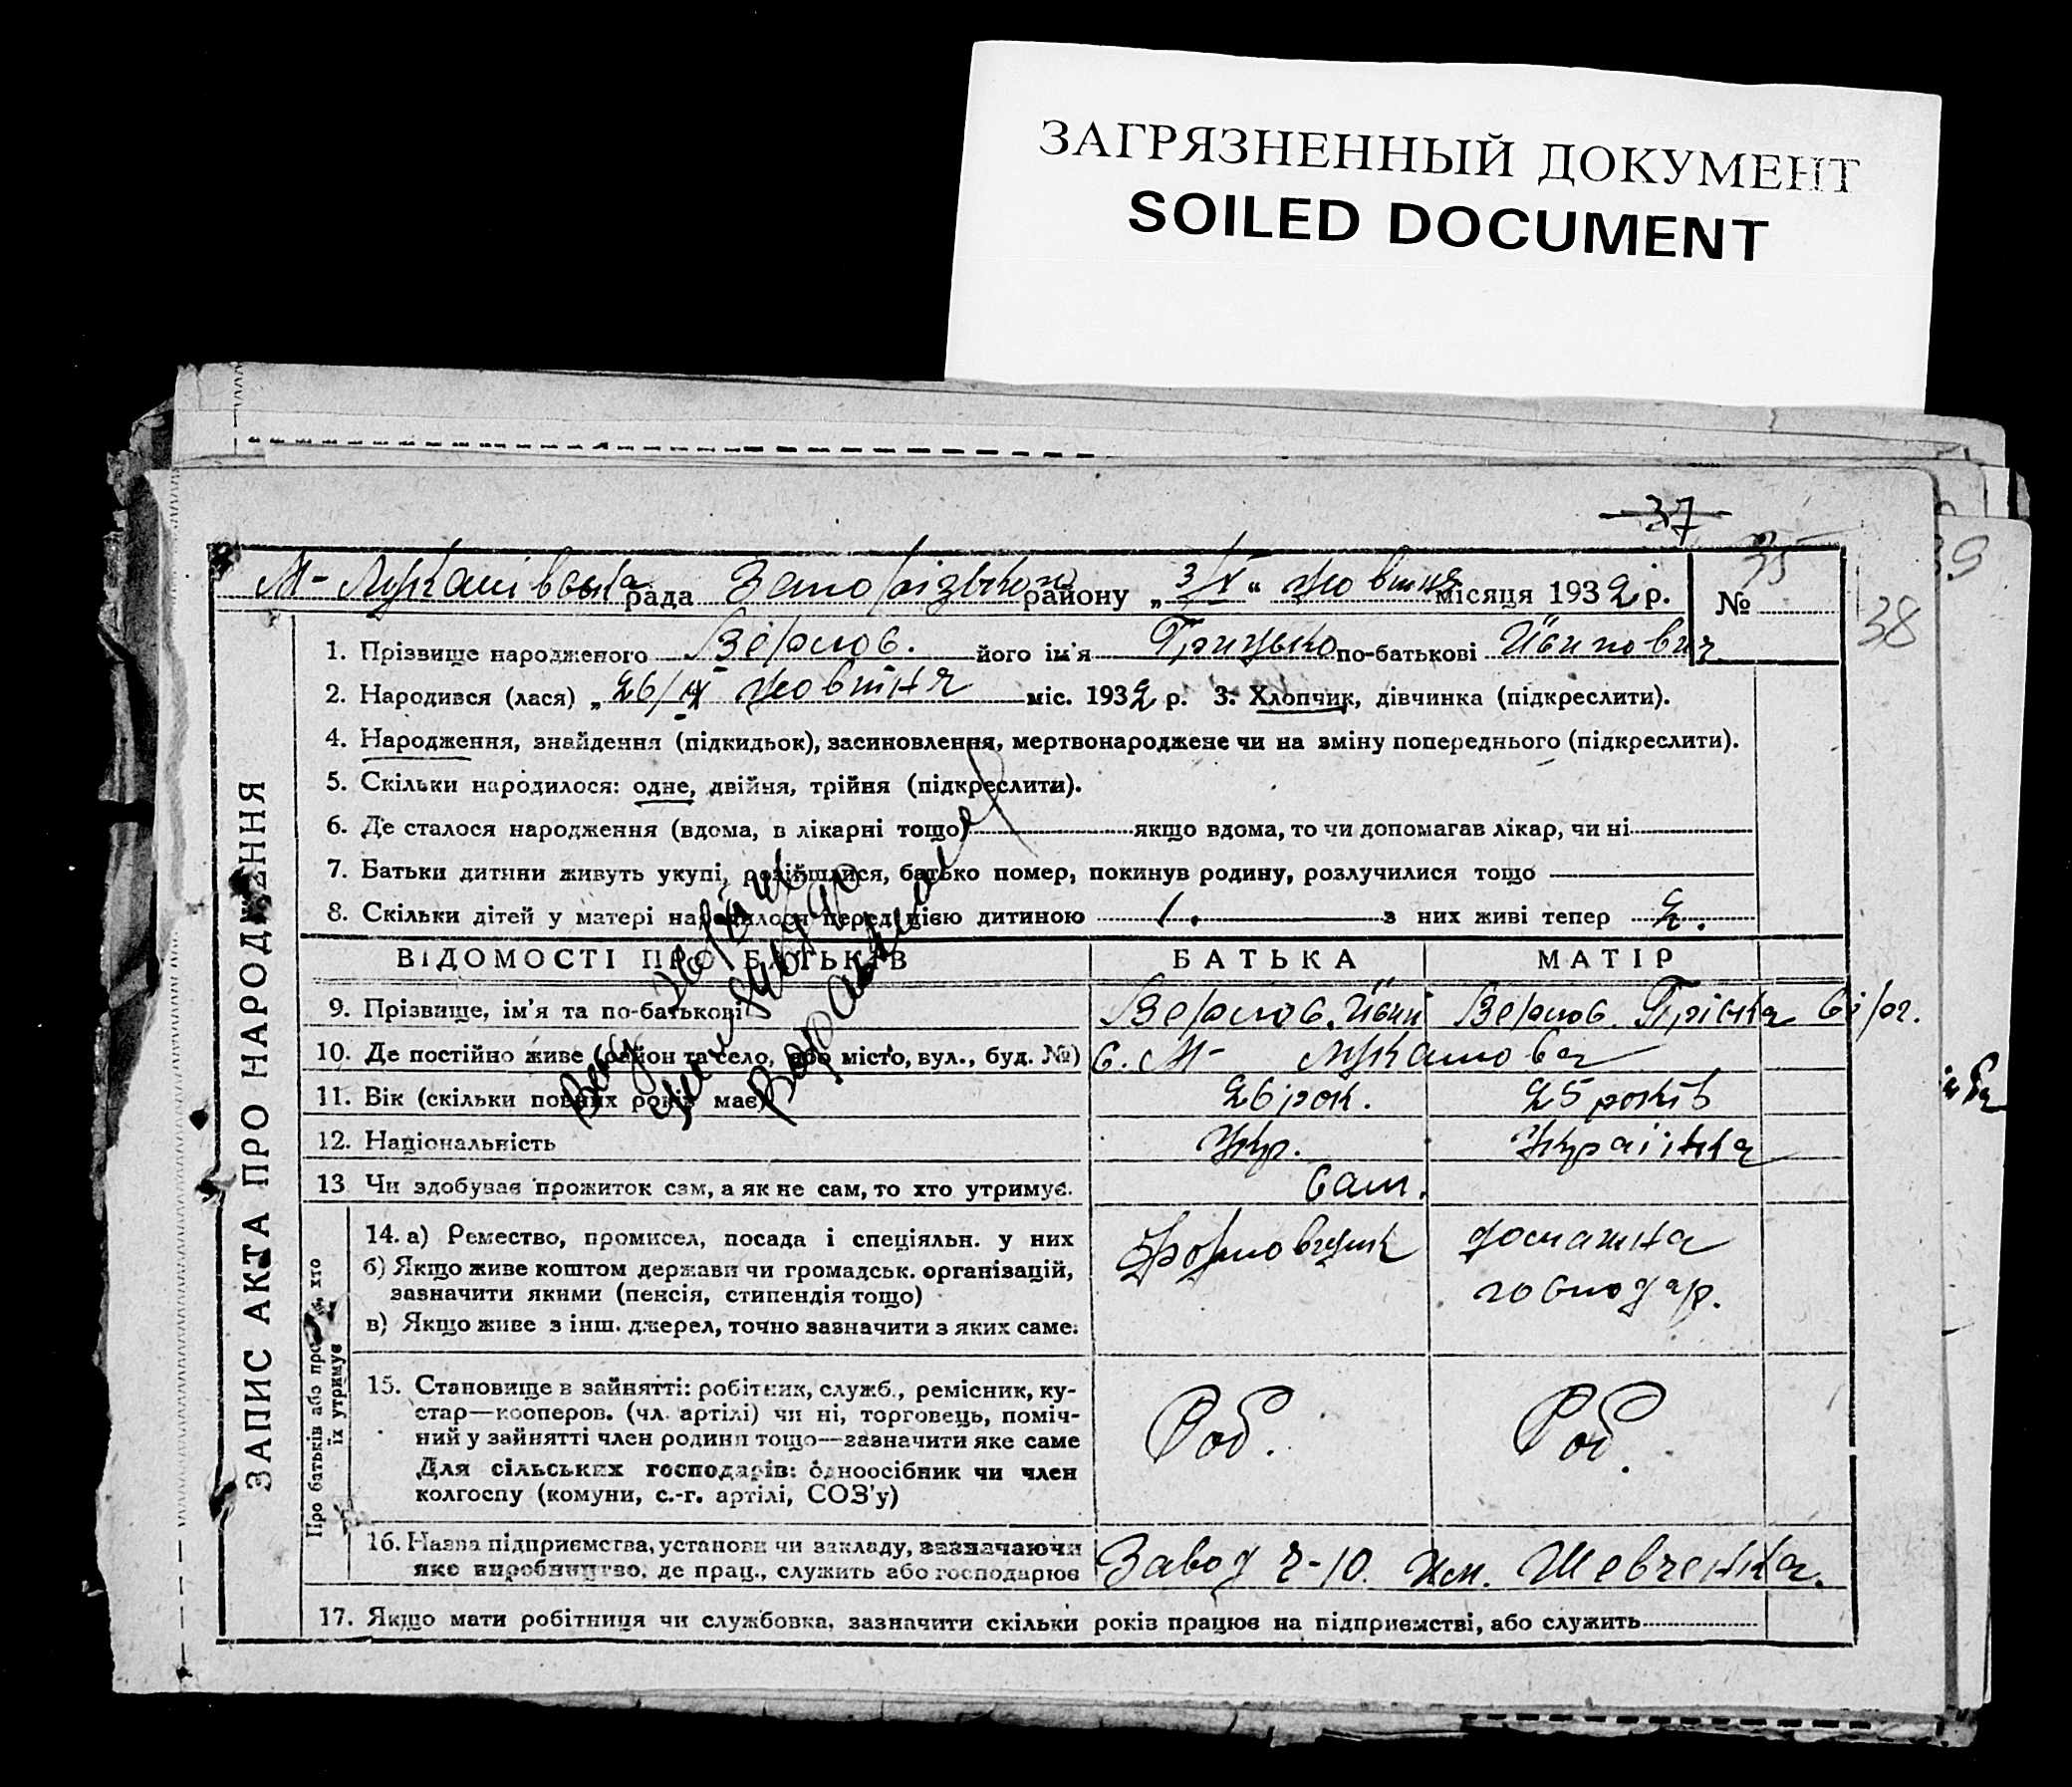 ЗАГРЯЗНЕННЫЙ ДОКУМЕНТ
SOILED DOCUMENT
37
35
39
38
М- рада Запорізького району „3/X“ жовтня місяця 1932 р. №
ЗАПИС АКТА ПРО НАРОДЖЕННЯ
1. Прізвище народженого його ім'я Грицько по-батькові
2. Народився (лася) „26/ жовтня міс. 1932 р. 3. Хлопчик, дівчинка (підкреслити).
4. Народження, знайдення (підкидьок), засиновлення, мертвонароджене чи на зміну попереднього (підкреслити).
5. Скільки народилося: одне, двійня, трійня (підкреслити).
6. Де сталося народження (вдома, в лікарні тощо) якщо вдома, то чи допомагав лікар, чи ні
7. Батьки дитини живуть укупі, розійшлися, батько помер, покинув родину, розлучилися тощо
8. Скільки дітей у матері народилося перед цією дитиною 1. з них живі тепер 2.
ВІДОМОСТІ ПРО БАТЬКІВ БАТЬКА МАТІР
9. Прізвище, ім'я та по-батькові
10. Де постійно живе (район та село, або місто, вул., буд. №) с. М-
11. Вік (скільки повних років має) 26 рок. 25 років
12. Національність Укр. Українка
13 Чи здобував прожиток сам, а як не сам, то хто утримує. сам.
Про батьків або про хто
їх утримує
14. а) Ремество, промисел, посада і спеціяльн. у них Формовщик домашна
б) Якщо живе коштом держави чи громадськ. організацій,
зазначити якими (пенсія, стипендія тощо) господар.
в) Якщо живе з інш. джерел, точно зазначити з яких саме.
15. Становище в зайнятті: робітник, служб., ремісник, ку-
стар—кооперов. (чл. артілі) чи ні, торговець, поміч- Роб. Роб.
ний у зайнятті член родини тощо—зазначити яке саме
Для сільських господарів: одноосібник чи член
колгоспу (комуни, с.-г. артілі, СОЗ'у)
16. Назва підприємства, установи чи закладу, зазначаючи
яке виробництво, де прац., служить або господарює Завод ч-10. им. Шевченка.
17. Якщо мати робітниця чи службовка, зазначити скільки років працює на підприємстві, або служить